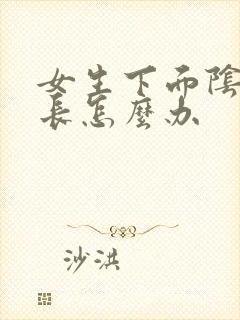 女生下而陰
長怎麼办
沙洪